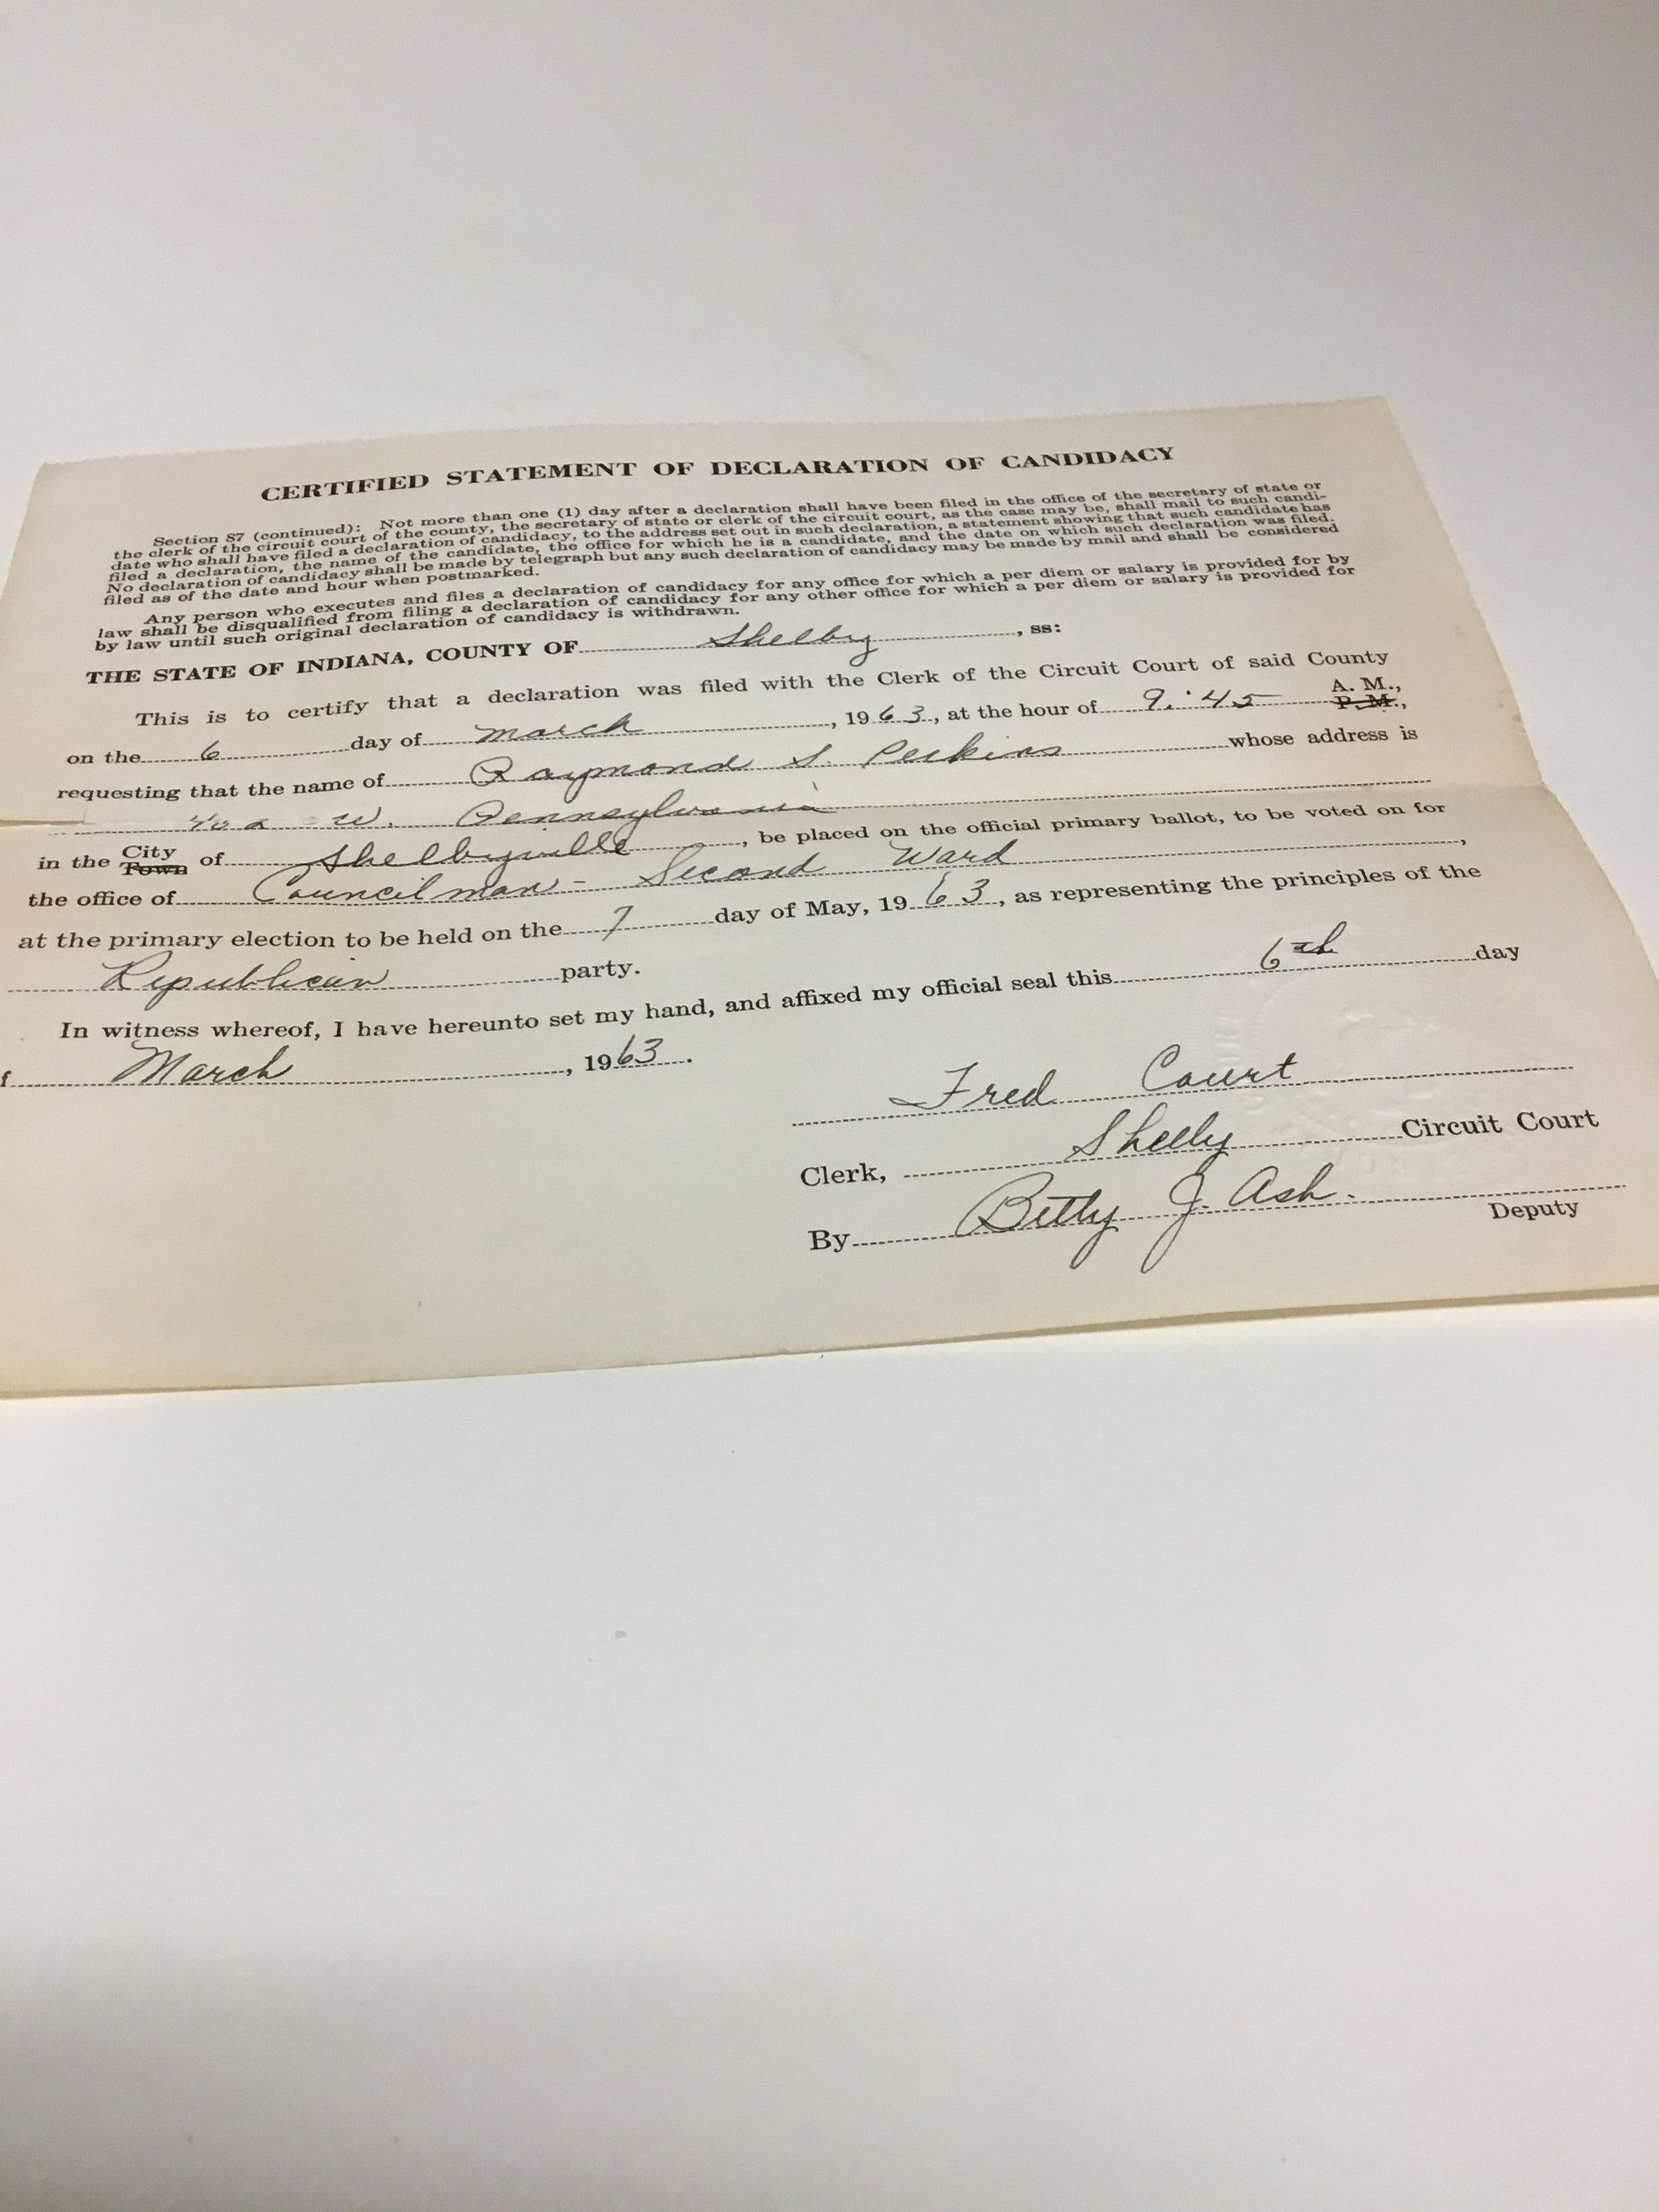 CERTIFIED STATEMENT OF DECLARATION OF CANDIDACY
Section 87 (continued): Not more than one (1) day after a declaration shall have been filed in the office of the secretary of state or
the clerk of the circuit court of the county, the secretary of state or clerk of the circuit court, as the case may be, shall mail to such candi-
date who shall have filed a declaration of candidacy, to the address set out in such declaration, a statement showing that such candidate has
filed a declaration, the name of the candidate, the office for which he is a candidate, and the date on which such declaration was filed.
No declaration of candidacy shall be made by telegraph but any such declaration of candidacy may be made by mail and shall be considered
filed as of the date and hour when postmarked.
Any person who executes and files a declaration of candidacy for any office for which a per diem or salary is provided for by
law shall be disqualified from filing a declaration of candidacy for any other office for which a per diem or salary is provided for
by law until such original declaration of candidacy is withdrawn.
THE STATE OF INDIANA, COUNTY OF Shelby, ss:
This is to certify that a declaration was filed with the Clerk of the Circuit Court of said County
on the 6 day of March, 1963, at the hour of 9:45 A. M., P. M.,
requesting that the name of Raymond S. Perkins whose address is
W. Pennsylvania
in the City Town of Shelbyville, be placed on the official primary ballot, to be voted on for
the office of Councilman - Second Ward,
at the primary election to be held on the 7 day of May, 1963, as representing the principles of the
Republican party.
In witness whereof, I have hereunto set my hand, and affixed my official seal this 6th day
f March, 1963.
Fred Court
Clerk, Shelby Circuit Court
By Betty J. Ash.
Deputy